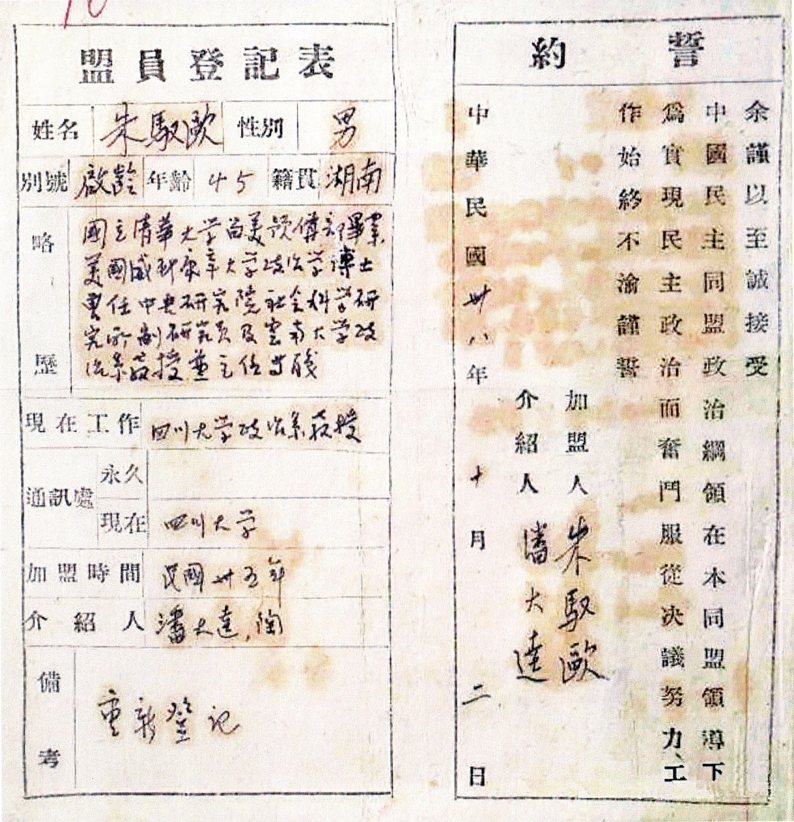 盟員登記表
姓名 朱馭歐 性別 男
別號 啟齡 年齡 45 籍貫 湖南
略歷
國立清華大学留美預備部畢業
美國威斯康辛大学政治学博士
曾任中央研究院社会科学研
究所副研究員及雲南大学政
治系教授兼主任等職
現在工作 四川大学政治系教授
通訊處 永久
現在 四川大学
加盟時間 民國卅五年
介紹人 潘大逵,陶
備考 重新登记
誓約
余謹以至誠接受
中國民主同盟政治綱領在本同盟領導下
爲實現民主政治而奮鬥服從决議努力、工
作始終不渝謹誓
加盟人 朱馭歐
介紹人 潘大逵
中華民國卅八年十月二日